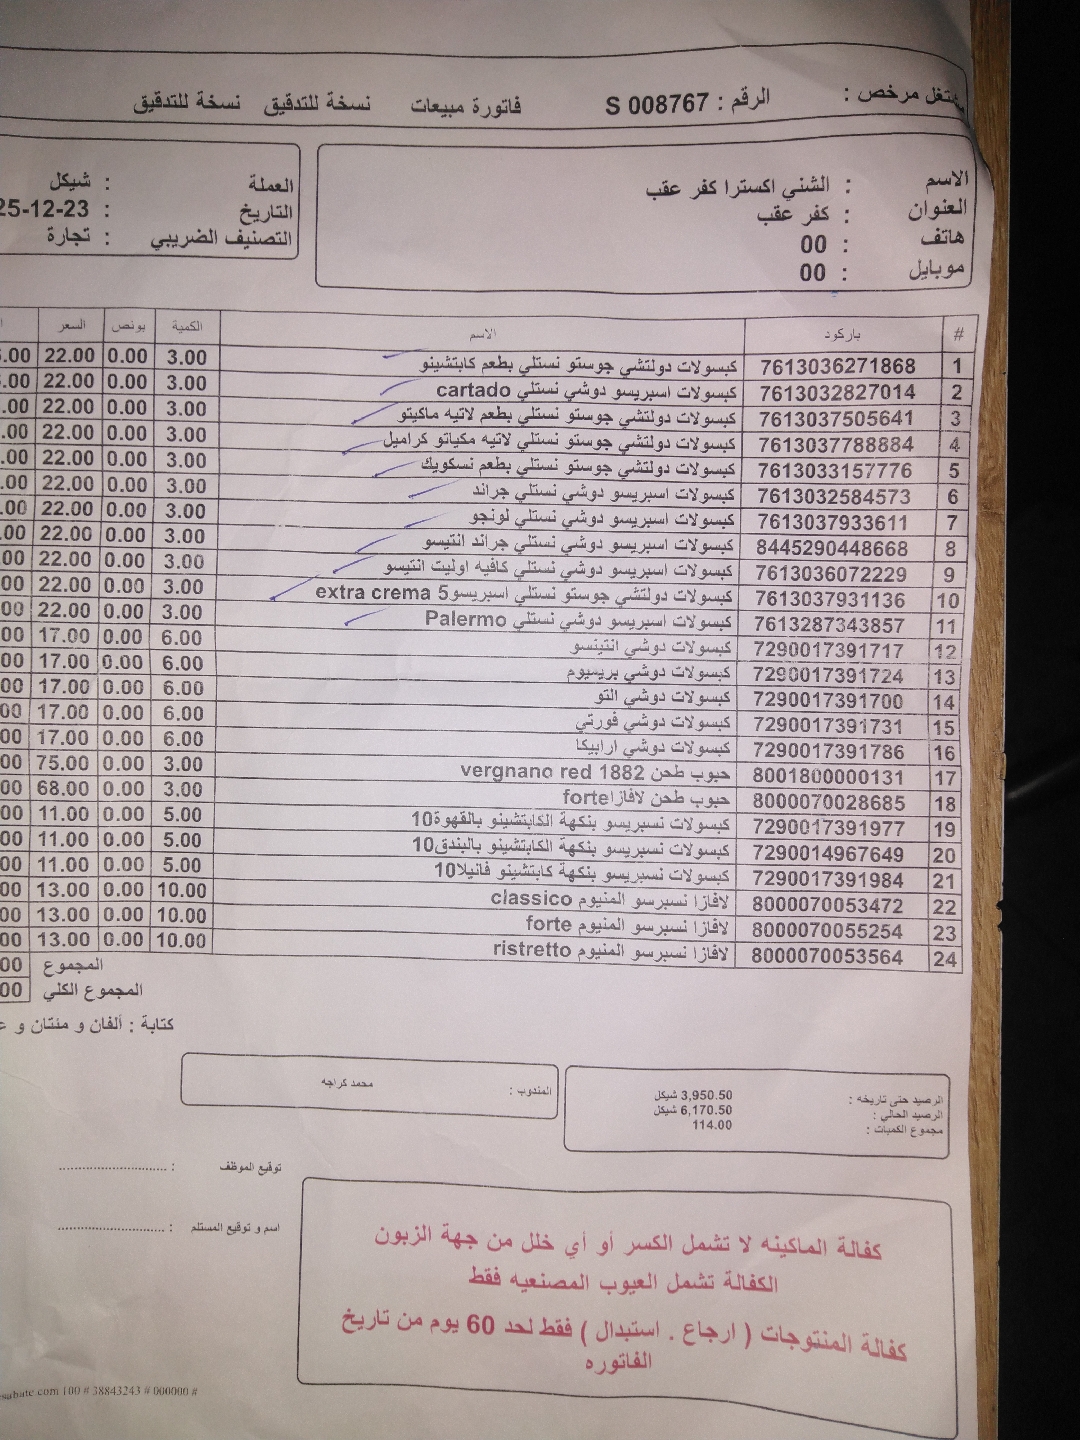 مشتغل مرخص : الرقم : S 008767 فاتورة مبيعات نسخة للتدقيق نسخة للتدقيق
الاسم : الشني اكسترا كفر عقب
العنوان : كفر عقب
هاتف : 00
موبايل : 00
العملة : شيكل
التاريخ : 25-12-23
التصنيف الضريبي : تجارة
# باركود الاسم الكمية بونص السعر
1 7613036271868 كبسولات دولتشي جوستو نستلي بطعم كابتشينو 3.00 0.00 22.00
2 7613032827014 كبسولات اسبريسو دوشي نستلي cartado 3.00 0.00 22.00
3 7613037505641 كبسولات دولتشي جوستو نستلي بطعم لاتيه ماكيتو 3.00 0.00 22.00
4 7613037788884 كبسولات دولتشي جوستو نستلي لاتيه مكياتو كراميل 3.00 0.00 22.00
5 7613033157776 كبسولات دولتشي جوستو نستلي بطعم نسكويك 3.00 0.00 22.00
6 7613032584573 كبسولات اسبريسو دوشي نستلي جراند 3.00 0.00 22.00
7 7613037933611 كبسولات اسبريسو دوشي نستلي لونجو 3.00 0.00 22.00
8 8445290448668 كبسولات اسبريسو دوشي نستلي جراند انتيسو 3.00 0.00 22.00
9 7613036072229 كبسولات اسبريسو دوشي نستلي كافيه اوليت انتيسو 3.00 0.00 22.00
10 7613037931136 كبسولات دولتشي جوستو نستلي اسبريسو5 extra crema 3.00 0.00 22.00
11 7613287343857 كبسولات اسبريسو دوشي نستلي Palermo 3.00 0.00 22.00
12 7290017391717 كبسولات دوشي انتينسو 6.00 0.00 17.00
13 7290017391724 كبسولات دوشي بريسيوم 6.00 0.00 17.00
14 7290017391700 كبسولات دوشي التو 6.00 0.00 17.00
15 7290017391731 كبسولات دوشي فورتي 6.00 0.00 17.00
16 7290017391786 كبسولات دوشي ارابيكا 6.00 0.00 17.00
17 8001800000131 حبوب طحن vergnano red 1882 3.00 0.00 75.00
18 8000070028685 حبوب طحن لافازاforte 3.00 0.00 68.00
19 7290017391977 كبسولات نسبريسو بنكهة الكابتشينو بالقهوة10 5.00 0.00 11.00
20 7290014967649 كبسولات نسبريسو بنكهة الكابتشينو بالبندق10 5.00 0.00 11.00
21 7290017391984 كبسولات نسبريسو بنكهة كابتشينو فانيلا10 5.00 0.00 11.00
22 8000070053472 لافازا نسبرسو المنيوم classico 10.00 0.00 13.00
23 8000070055254 لافازا نسبرسو المنيوم forte 10.00 0.00 13.00
24 8000070053564 لافازا نسبرسو المنيوم ristretto 10.00 0.00 13.00
المجموع
المجموع الكلي
كتابة : ألفان و مئتان و
الرصيد حتى تاريخه : 3,950.50 شيكل
الرصيد الحالي : 6,170.50 شيكل
مجموع الكميات : 114.00
المندوب : محمد كراجه
توقيع الموظف : ............................
اسم و توقيع المستلم : ............................
كفالة الماكينه لا تشمل الكسر أو أي خلل من جهة الزبون
الكفالة تشمل العيوب المصنعيه فقط
كفالة المنتوجات ( ارجاع . استبدال ) فقط لحد 60 يوم من تاريخ
الفاتوره
100 # 38843243 # 000000 #